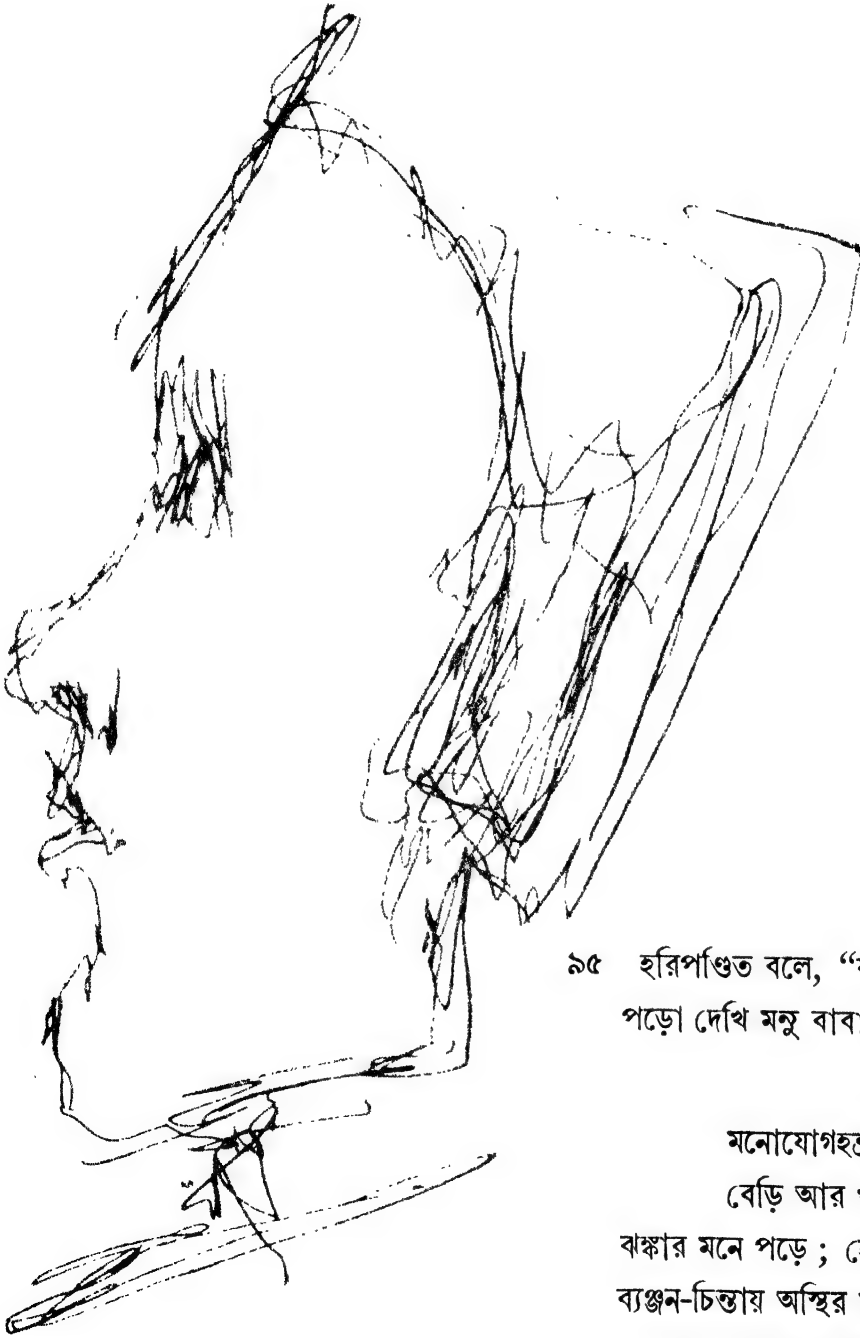 ৯৫ হরিপণ্ডিত বলে,
পড়ো দেখি মনু বাবা
মনোযোগহন্ত্রী
বেড়ি আর
ঝঙ্কার মনে পড়ে ;
ব্যঞ্জন-চিন্তায় অস্থির